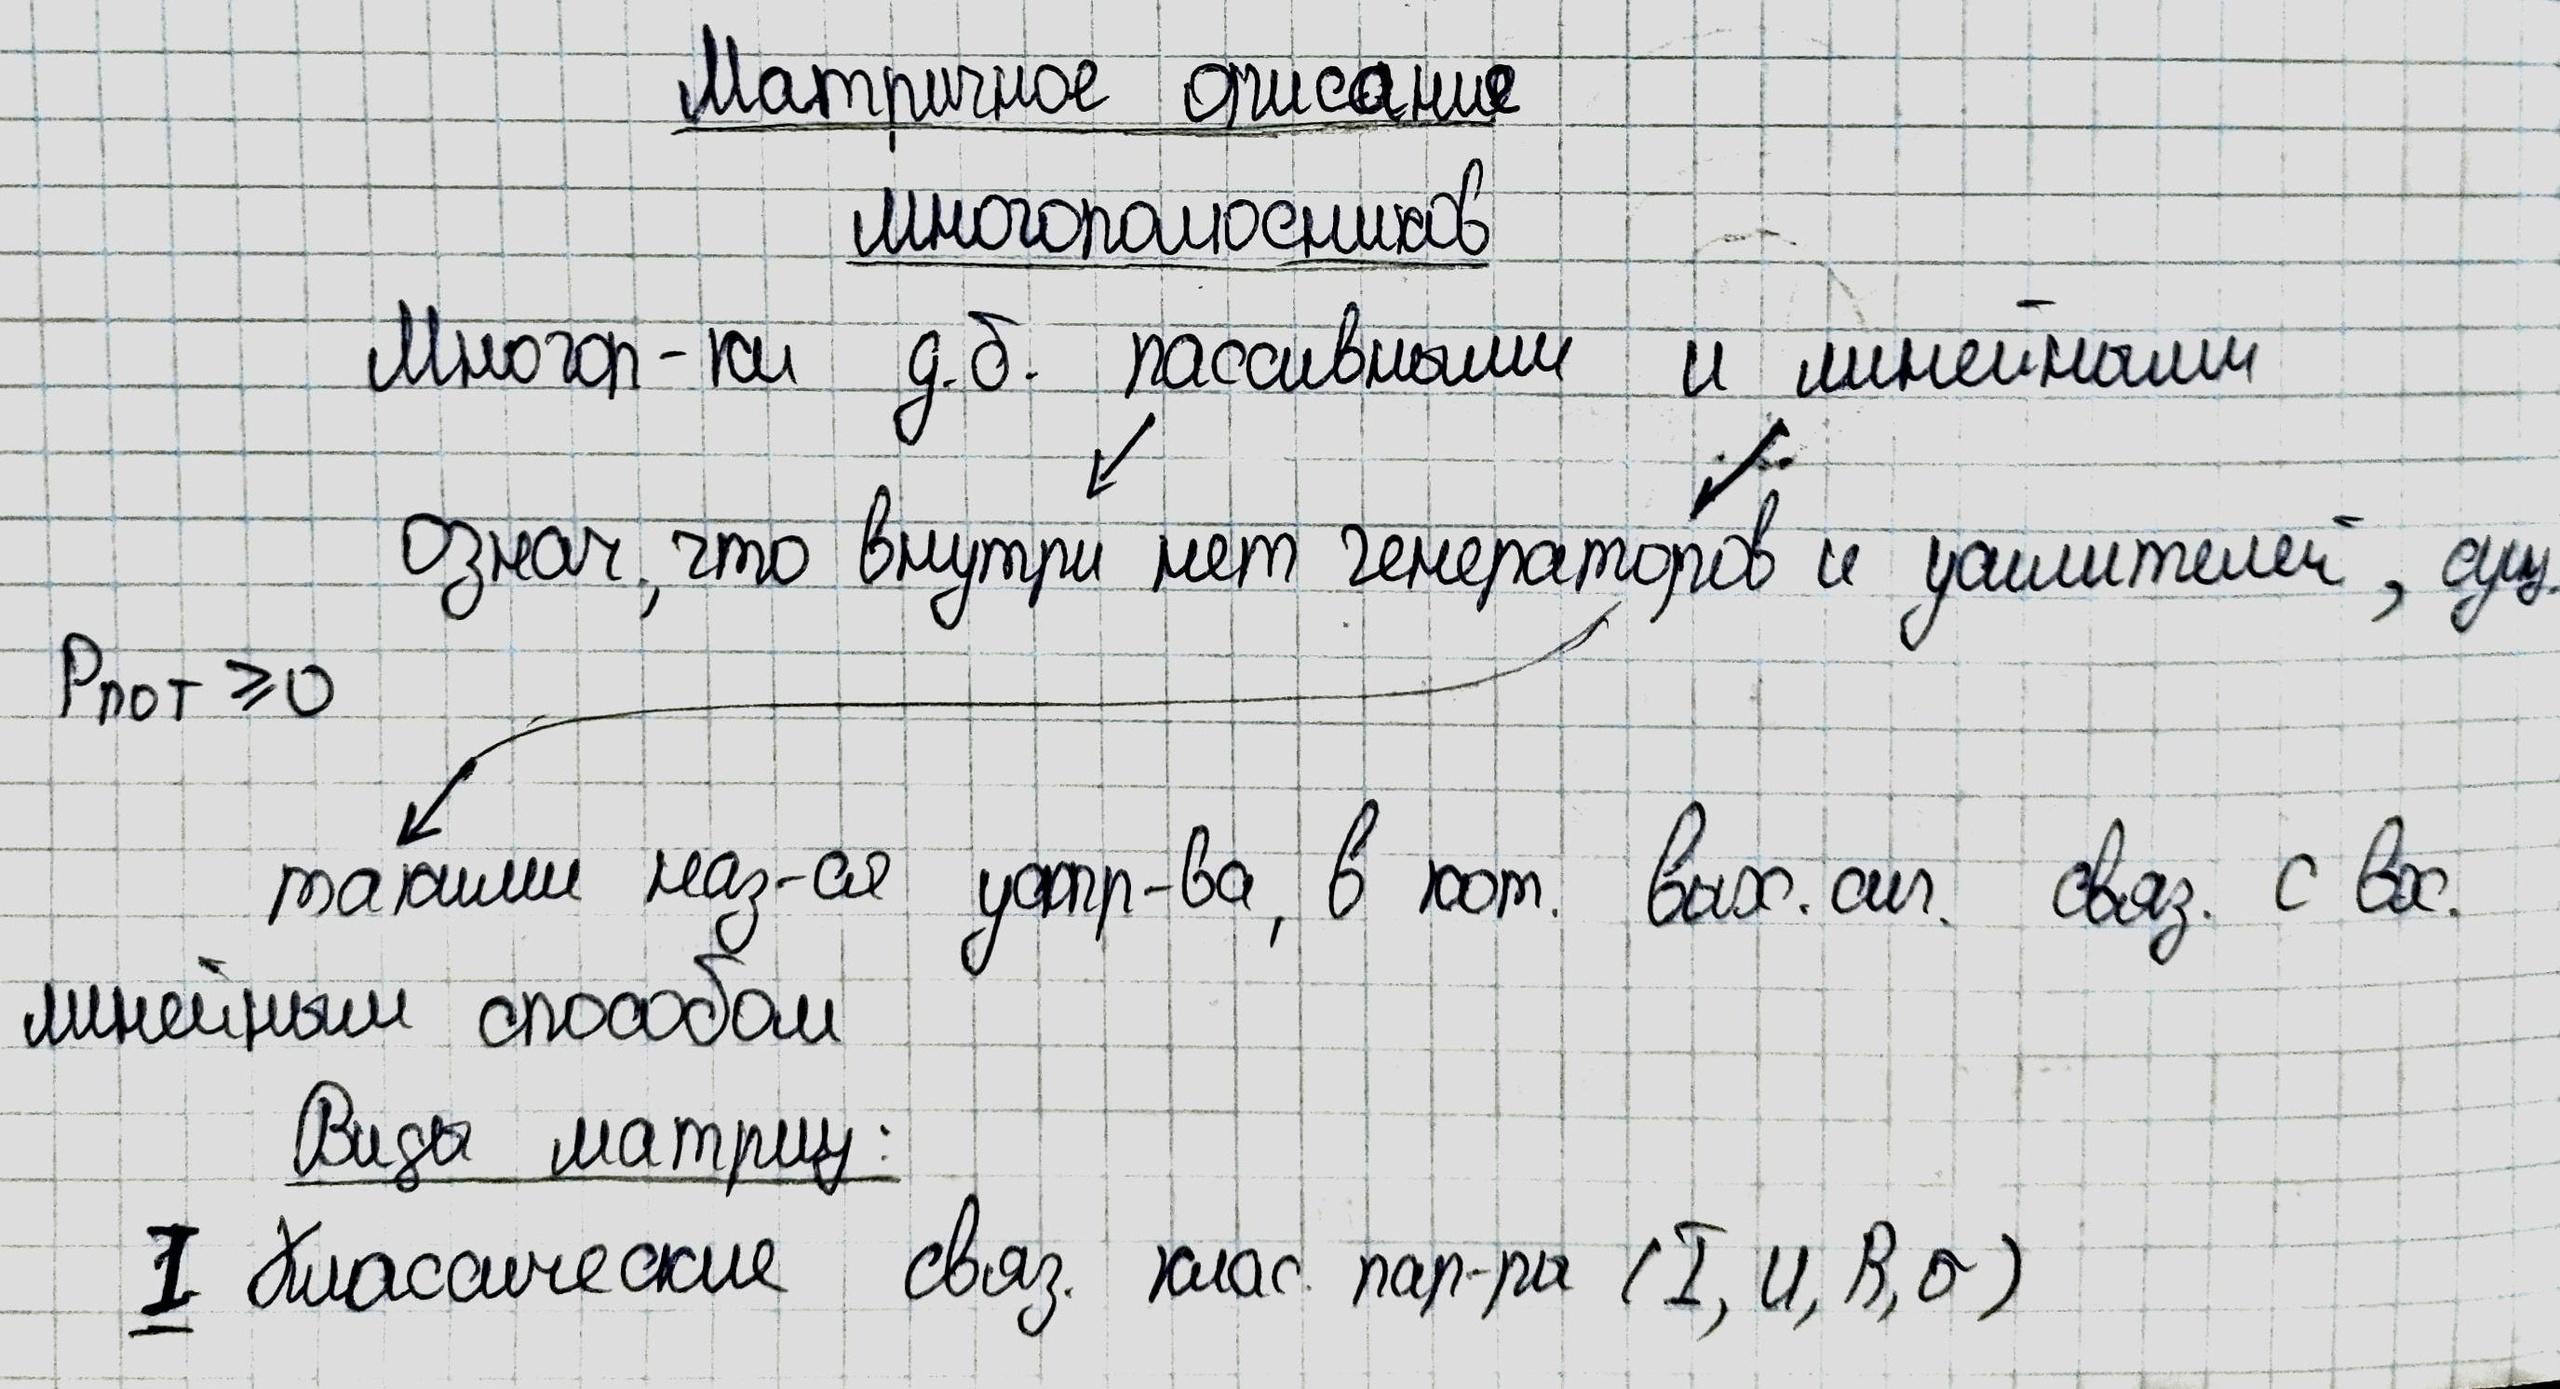 Матричное описание
многополюсников
Многоп-ки д.б. пассивными и линейными
Означ., что внутри нет генераторов и усилителей, сущ.
Pпот ≥ 0
такими наз-ся устр-ва, в кот. вых. сиг. связ. с вх.
линейным способом
Виды матриц:
I Классические связ. клас. пар-ры (I, U, R, σ)